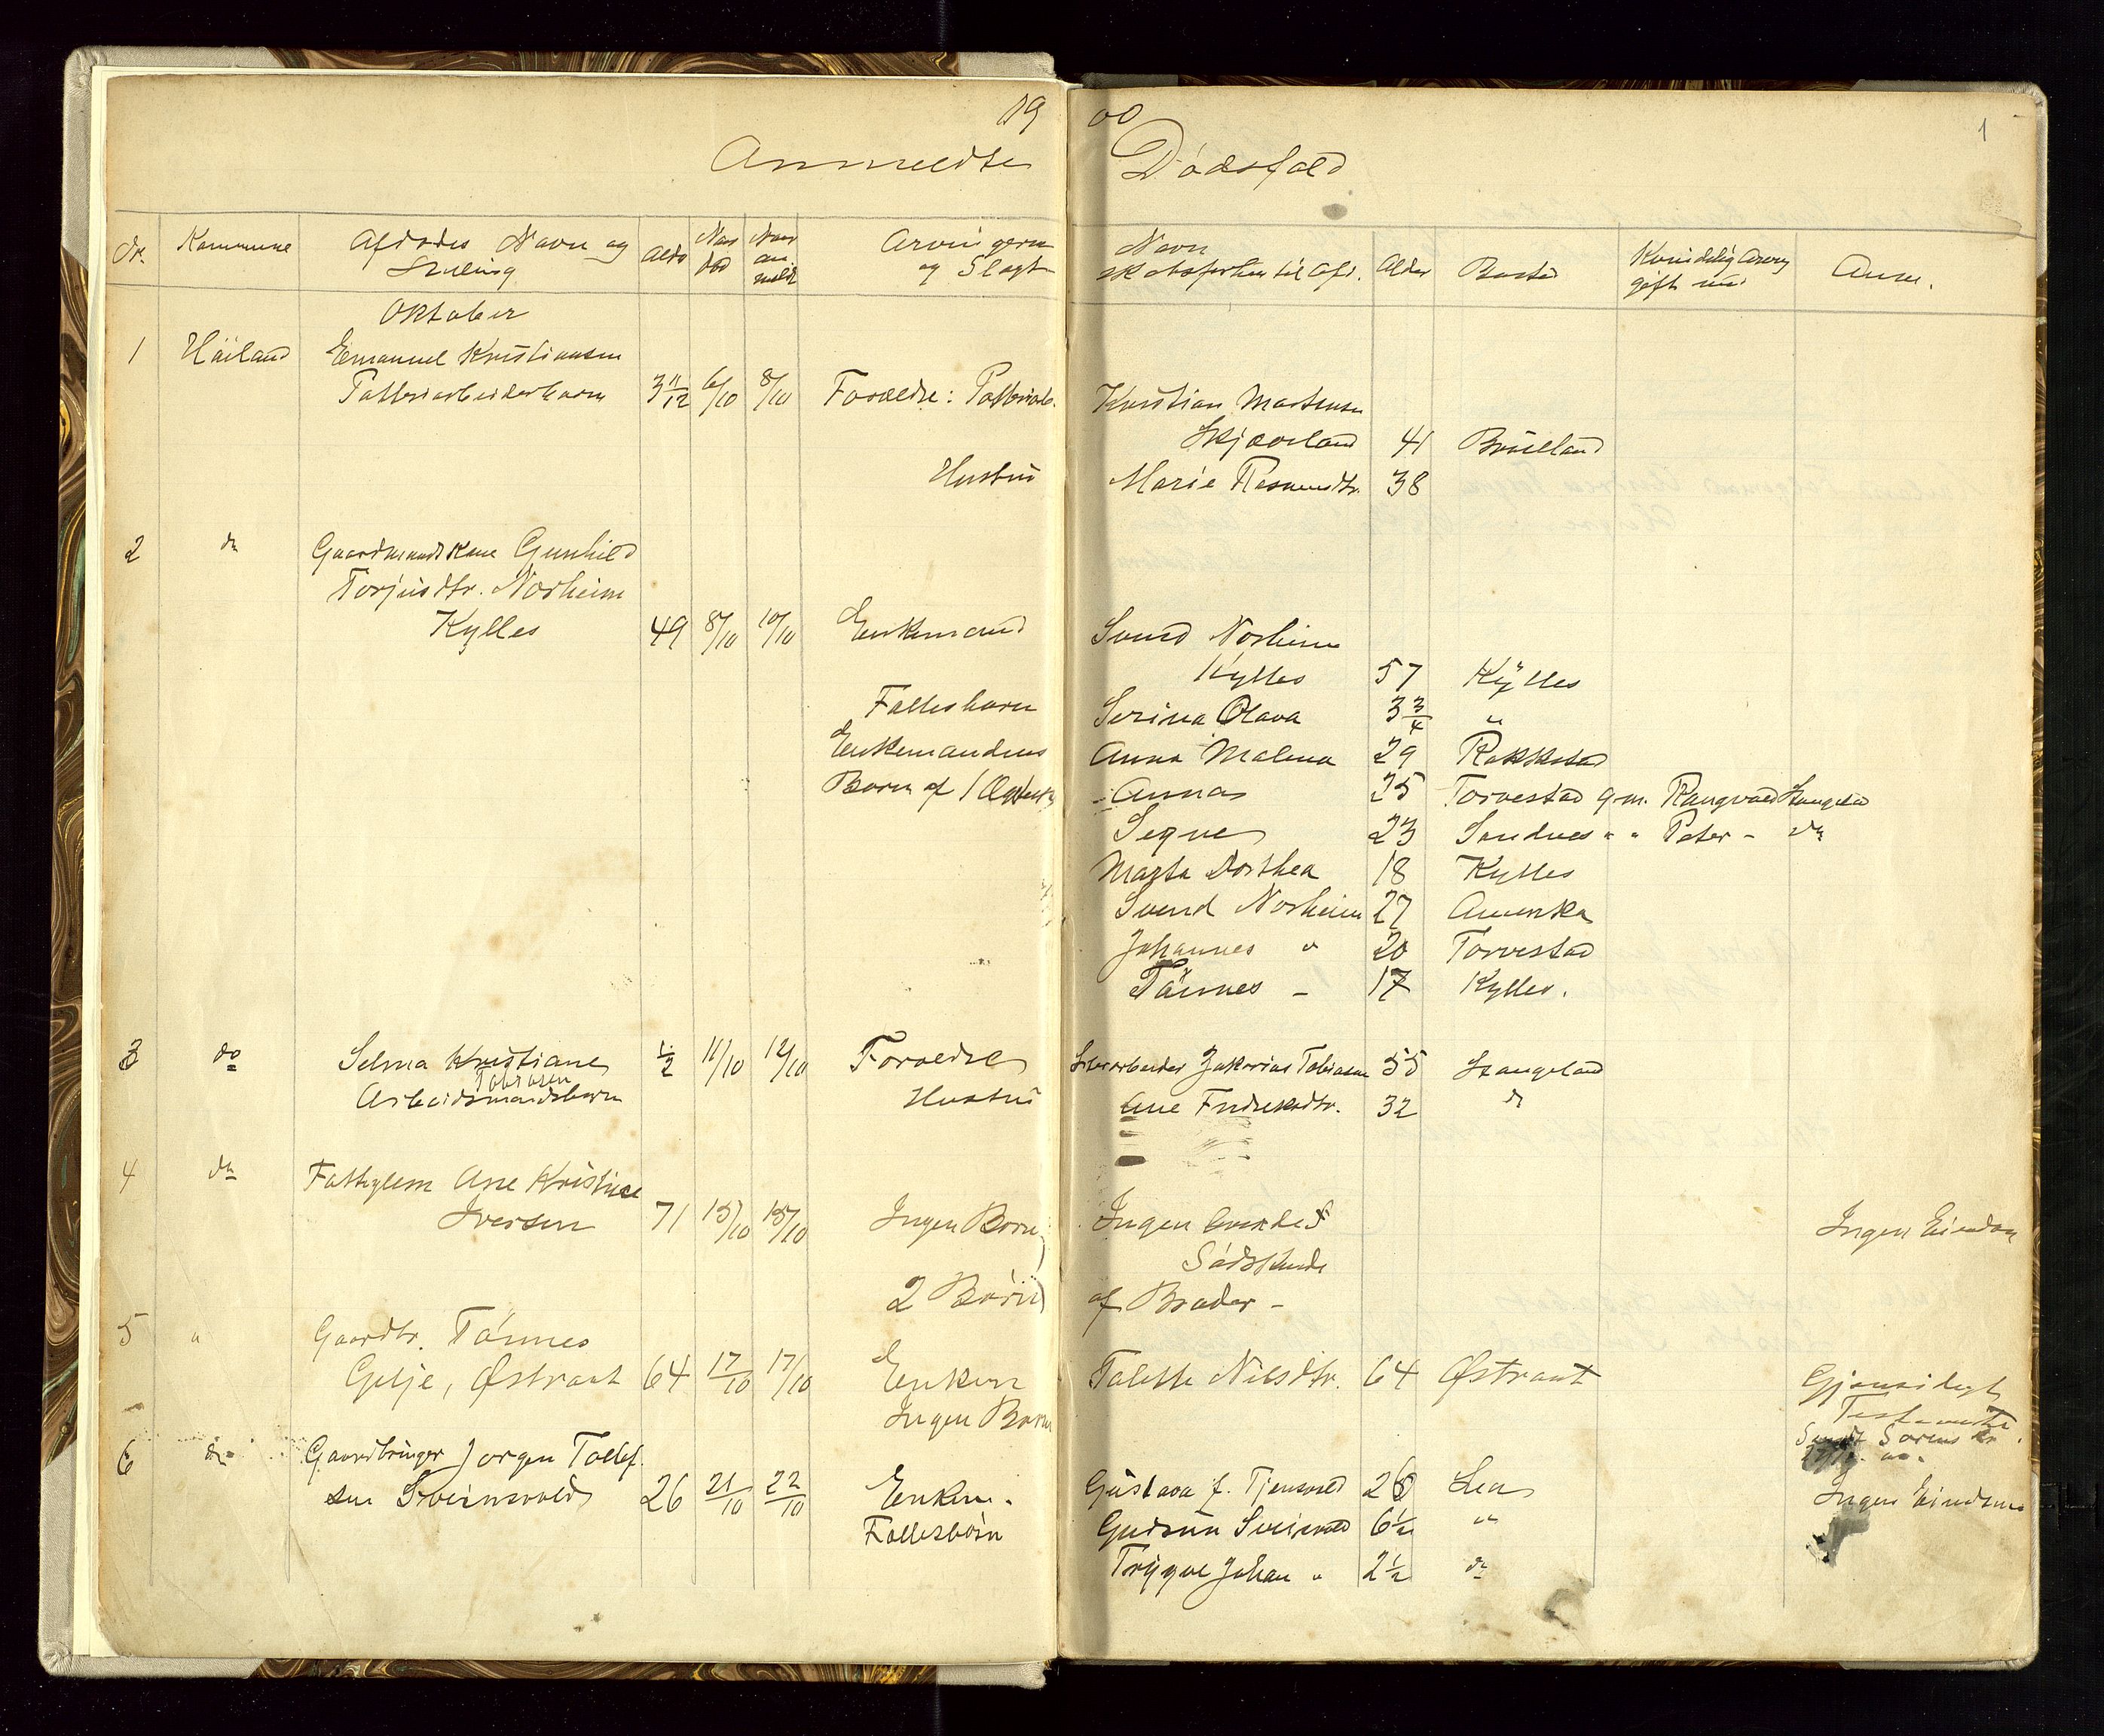 19 00
1
Anmeldte Dødsfald
Nr. Kommune Afdødes Navn og Stilling Alder Naar død Naar anmeldt Arvingerne og Slægt
Navn Slægtsforhold til Afd. Alder Bosted Kvindelig Arving gift med Anm.
Oktober
1 Høiland Emanuel Kristiansen
Potteriarbeiderbarn 3 11/12 6/10 8/10 Forældre: Potteriarb. Kristian Martensen
Skjæveland 41 Brueland
Hustru Marie Rasmusdtr. 38
2 do Gaardmandskone Gunhild
Torjusdtr. Norheim
Kylles 49 8/10 10/10 Enkemand Svend Norheim
Kylles 57 Kylles
Fællesbarn Serina Olava 3 3/4 "
Enkemandens Anna Malena 29
Børn af 1 Ægtesk. Anna 25 Torvestad g.m. Rangvald Stangeland
Signe 23 Sandnes " " Peter - do
Marta Dorthea 18 Kylles
Svend Norheim 27 Amerika
Johannes " 20 Torvestad
Tønnes - 17 Kylles.
3 do Selma Kristiane
Tobiasen
Arbeidsmandsbarn 1/2 11/10 12/10 Forældre Zakarias Tobiasen 55 Stangeland
Hustru Ane Fredriksdtr. 32 do
4 do Fattiglem Ane Kristine
Iversen 71 15/10 15/10 Ingen Børn Ingen
Ingen Eiendom
Sødskende
2 Børn af Broder -
5 " Gaardbr. Tønnes
Gilje, Østraat 64 17/10 17/10 Enken Talette Nilsdtr. 64 Østraat Gjensidigt
Ingen Børn Testamente
6 do Gaardbruger Jørgen Tollef-
sen Sveinsvold 26 21/10 22/10 Enken. Gustava f. Tjensvold 26 Lea Ingen Eiendom
Fællesbørn Gudrun Sveinsvold 6 1/2 "
Trygve Johan " 2 1/2 do